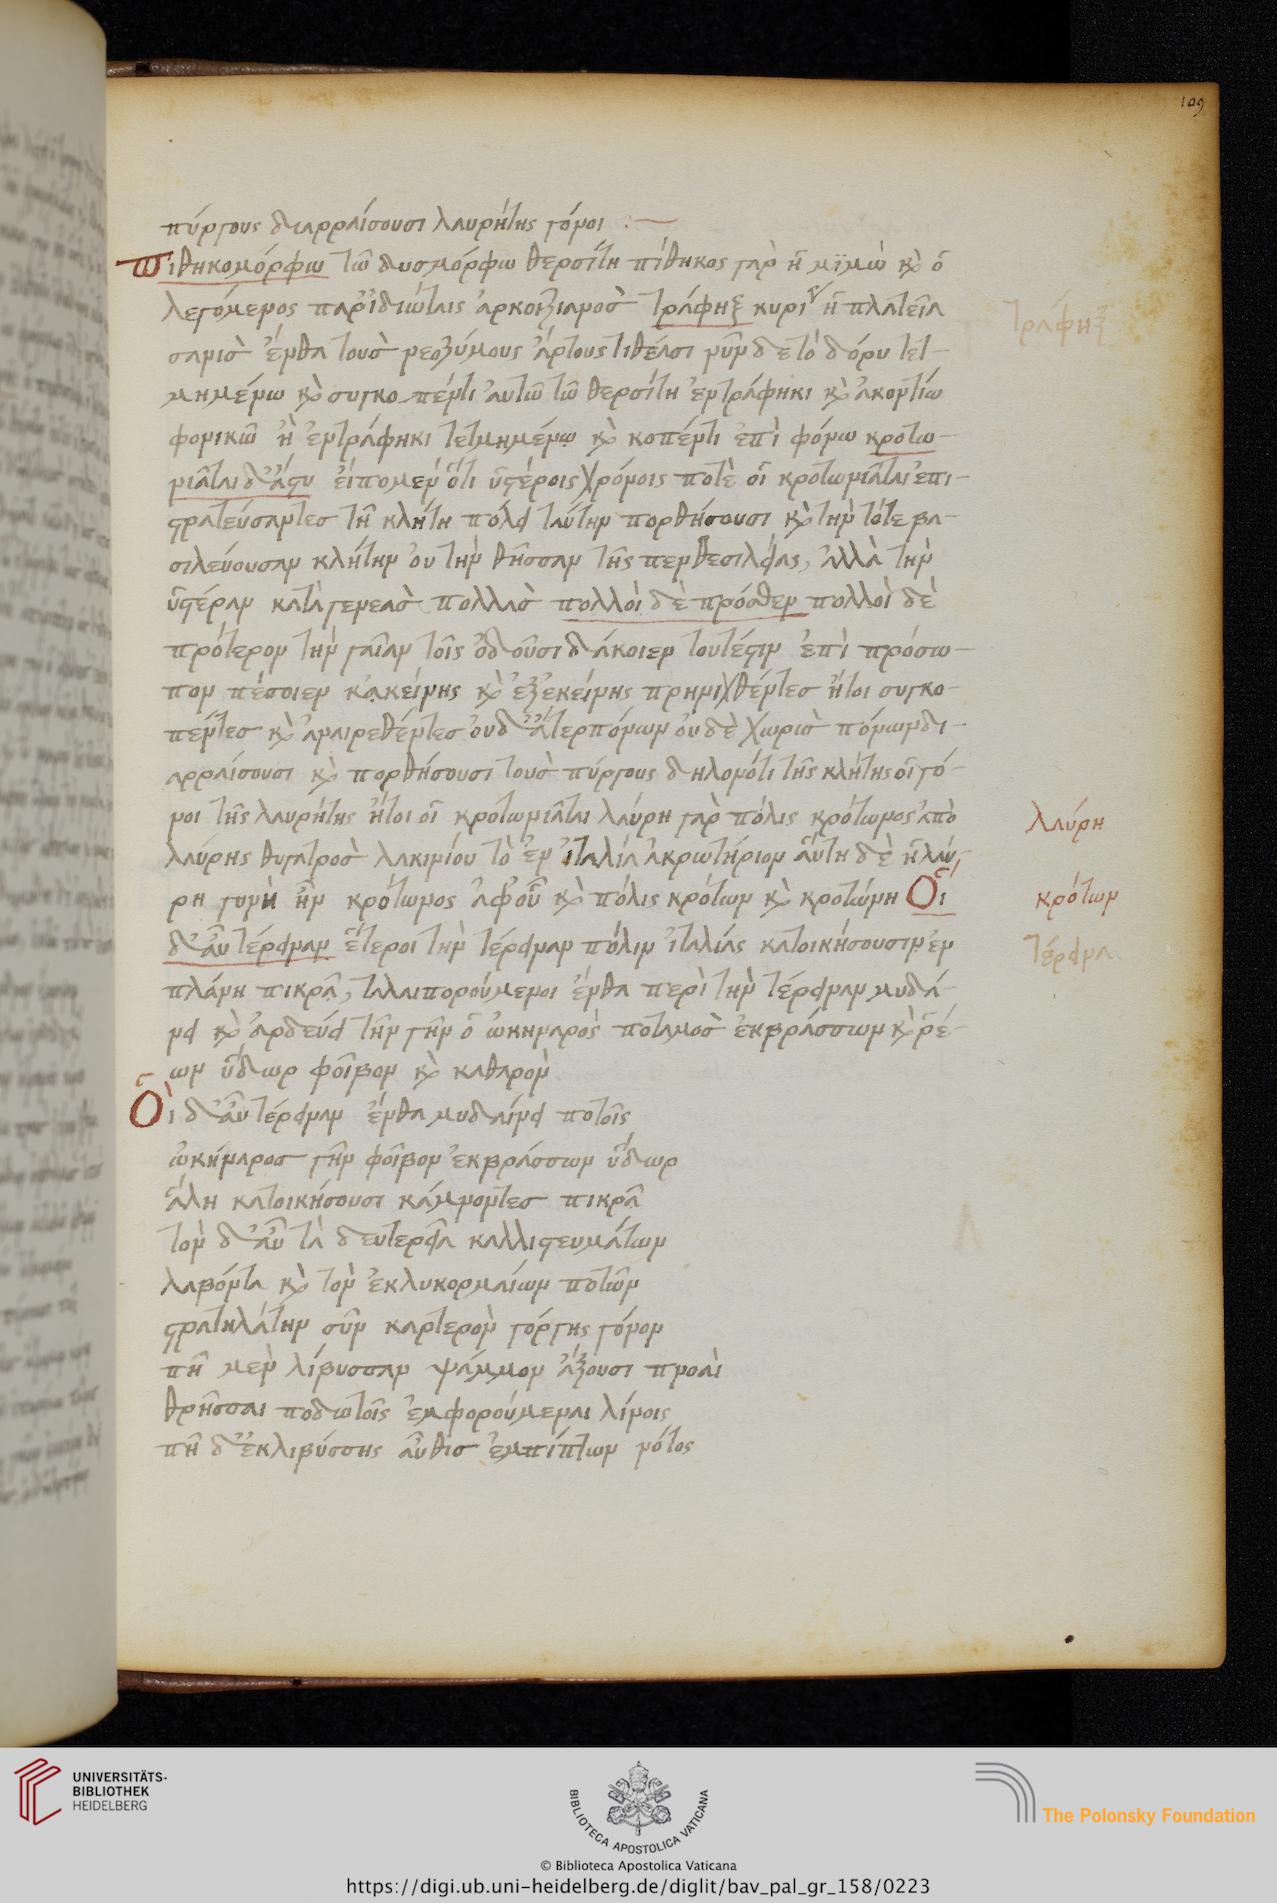 109
πύργους διαρραίσουσι λαυρήτης γόνοι :—
Πιθηκομόρφω τῶ δυσμόρφω θερσίτη πίθηκος γὰρ ἡ μϊμὼ κ̀ ὁ
λεγόμενος παρ' ἰδιώταις ἀρκοιζιανοσ τράφηξ κυρί ἡ πλατεῖα
σανισ ἔνθα τουσ νεοζύμους ἄρτους τιθέασι νῦν δε τὸ δόρυ τετ-
μημένω κ̀ συγκοπέντι αὐτῶ τῶ θερσίτη ἐν τράφηκι κ̀ ἀκοντίω
φονικῶ ἢ ἐν τράφηκι τετμημένω κ̀ κοπέντι ἐπὶ φόνω κροτω-
νιᾶται δ' ἄστυ εἴπομεν ὅτι ὑστέροις χρόνοις ποτὲ οἱ κροτωνιᾶται ἐπι-
στρατεύσαντεσ τῆ κλήτη πόλει ταύτην πορθήσουσι κ̀ τὴν τότε βα-
σιλεύουσαν κλήτην οὐ τὴν θῆσσαν τῆς πενθεσιλείας, ἀλλὰ τὴν
ὑστέραν κατὰ γενεασ πολλασ πολλοὶ δὲ πρόσθεν πολλοὶ δὲ
πρότερον τὴν γαῖαν τοῖς ὀδοῦσι δάκοιεν τουτέστιν ἐπὶ πρόσω-
πον πέσοιεν κἀκείνης κ̀ ἐξ ἐκείνης πρηνιχθέντεσ ἤτοι συγκο-
πέντεσ κ̀ ἀναιρεθέντεσ οὐδ' ἄτερ πόνων οὐδὲ χωρισ πόνων δι-
αρραίσουσι κ̀ πορθήσουσι τουσ πύργους δηλονότι τῆς κλήτης οἱ γό-
νοι τῆς λαυρήτης ἤτοι οἱ κροτωνιᾶται λαύρη γὰρ πόλις κρότωνος ἀπὸ
λαύρης θυγατροσ λακινίου τὸ ἐν ἰταλία ἀκρωτήριον αὕτη δὲ ἡ λαύ-
ρη γυνὴ ἦν κρότωνος ἀφ' οὗ κ̀ πόλις κρότων κ̀ κροτώνη Οἱ
δ' αὖ τέρειναν ἕτεροι τὴν τέρειναν πόλιν ἰταλίας κατοικήσουσιν ἐν
πλάνη πικρᾶ, ταλαιπορούμενοι ἔνθα περὶ τὴν τέρειναν μυδά-
νει κ̀ ἀρδεύει τὴν γῆν ὁ ὠκηναρὸς ποταμοσ ἐκβράσσων κ̀ ῥέ-
ων ὕδωρ φοῖβον κ̀ καθαρον
Οἱ δ' αὖ τέρειναν ἔνθα μυδαίνει ποτοῖς
ὠκήναροσ γῆν φοῖβον ἐκβράσσων ὕδωρ
ἄλη κατοικήσουσι κάμνοντεσ πικρᾶ
τὸν δ' αὖ τὰ δευτερεῖα καλλιστευμάτων
λαβόντα κ̀ τὸν ἐκ λυκορμαίων ποτῶν
στρατηλάτην σῦν καρτερον γόργης γόνον
πῆ μεν λίβυσσαν ψάμμον ἄξουσι πνοαὶ
θρῆσσαι ποδωτοῖς ἐμφορούμεναι λίνοις
πῆ δ' ἐκ λιβύσσης αὖθισ ἐμπίπτων νότος
τράφηξ
λαύρη
κρότων
τέρεινα
UNIVERSITÄTS-
BIBLIOTHEK
HEIDELBERG
BIBLIOTECA APOSTOLICA VATICANA
The Polonsky Foundation
© Biblioteca Apostolica Vaticana
https://digi.ub.uni-heidelberg.de/diglit/bav_pal_gr_158/0223